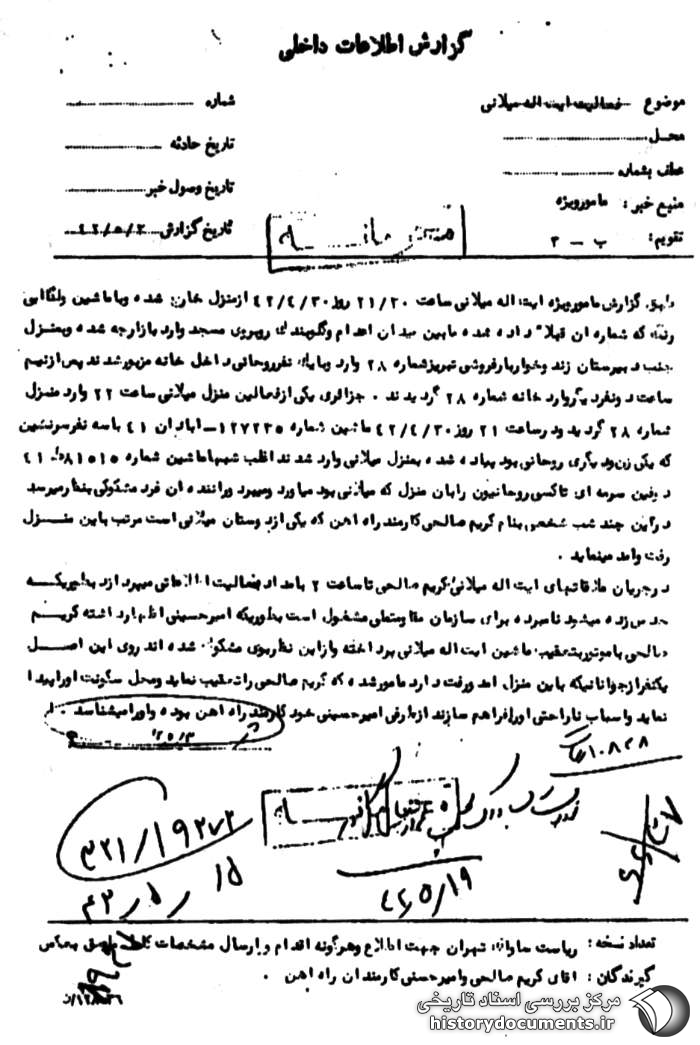 گزارش اطلاعات داخلی
موضوع فعالیت ایت اله میلانی
شماره
محل
تاریخ حادثه
عطف بشماره
تاریخ وصول خبر
منبع خبر : مامور ویژه
تاریخ گزارش ۴۲/۵/۳
تقویم : ب - ۳
طبق گزارش مامور ویژه ایت اله میلانی ساعت ۲۱/۳۰ روز ۴۲/۴/۳۰ از منزل خارج شده وبا ماشین
که شماره ان قبلا داده شده مابین میدان اعدام وگلوبندک روبروی مسجد وارد بازارچه شده وبمنزل
جنب دبیرستان زند وخواربارفروشی تبریز شماره ۲۸ وارد وبا یک نفر روحانی داخل خانه مزبور شدند پس از نیم
ساعت دونفر دیگر وارد خانه شماره ۲۸ گردیدند . جزائری یکی از فعالین منزل میلانی ساعت ۲۲ وارد منزل
شماره ۲۸ گردید ودر ساعت ۲۱ روز ۴۲/۴/۳۰ ماشین شماره ۱۲۷۲۳۵-ابادان ۴۱ با سه نفر سرنشین
که یکی زن ودیگری روحانی بود پیاده شده بمنزل میلانی وارد شدند اغلب شبها ماشین شماره ۸۱۵۱۵ ۴۱
دوفین سرمه ای تاکسی روحانیون را بان منزل که میلانی بود میاورد ومیبرد وراننده ان فرد مشکوکی بنظر میرسد
در این چند شب شخصی بنام کریم صالحی کارمند راه اهن که یکی از دوستان میلانی است مرتب باین منزل
رفت وامد مینماید .
در جریان ملاقاتهای ایت اله میلانی کریم صالحی تا ساعت ۲ بامداد بفعالیت اطلاعاتی میپردازد بطوریکه
حدس زده میشود نامبرده برای سازمان مقاومتملی مشغول است بطوریکه امیرحسینی اظهار داشته کریم
صالحی با موتور بتعقیب ماشین ایت اله میلانی پرداخته واز این نظر بوی مشکوک شده اند روی این اصل
یکنفر از جوانانیکه باین منزل امد ورفت دارد مامور شده که کریم صالحی را تعقیب نماید ومحل سکونت اورا پیدا
نماید واسباب ناراحتی اورا فراهم سازند از طرفی امیرحسینی خود کارمند راه اهن بوده واورا میشناسد .
۱۰۸۲۸
۳۲۱/۱۹۲۷۲
۴۲/۵/۱۵
۴۲/۵/۱۹
تعداد نسخه : ریاست ساواک تهران جهت اطلاع وهرگونه اقدام وارسال مشخصات کامل ملصق بعکس
گیرندگان : اقای کریم صالحی وامیرحسنی کارمندان راه اهن .
مرکز بررسی اسناد تاریخی
historydocuments.ir